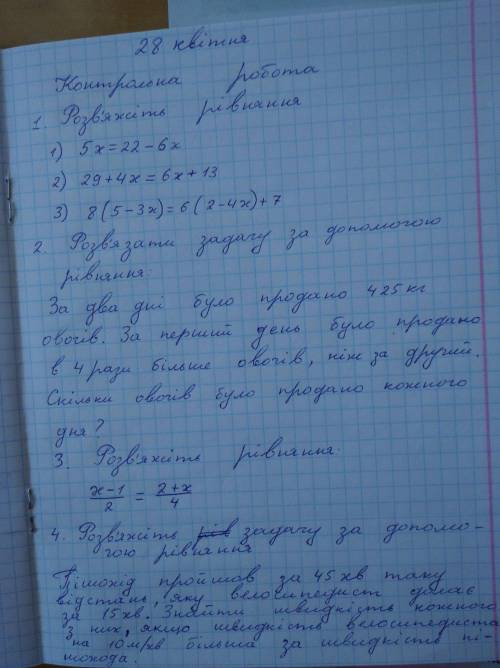 28 квітня
Контрольна робота
1. Розв'яжіть рівняння
1) 5x=22-6x
2) 29+4x=6x+13
3) 8(5-3x)=6(2-4x)+7
2. Розв'язати задачу за допомогою
рівняння:
За два дні було продано 425 кг
овочів. За перший день було продано
в 4 рази більше овочів, ніж за другий.
Скільки овочів було продано кожного
дня?
3. Розв'яжіть рівняння:
x-1/2 = 2+x/4
4. Розв'яжіть задачу за допомо-
гою рівняння
Пішохід пройшов за 45 хв таку
відстань, яку велосипедист долає
за 15 хв. Знайти швидкість кожного
з них, якщо швидкість велосипедиста
на 10 м/хв більша за швидкість пі-
шохода.